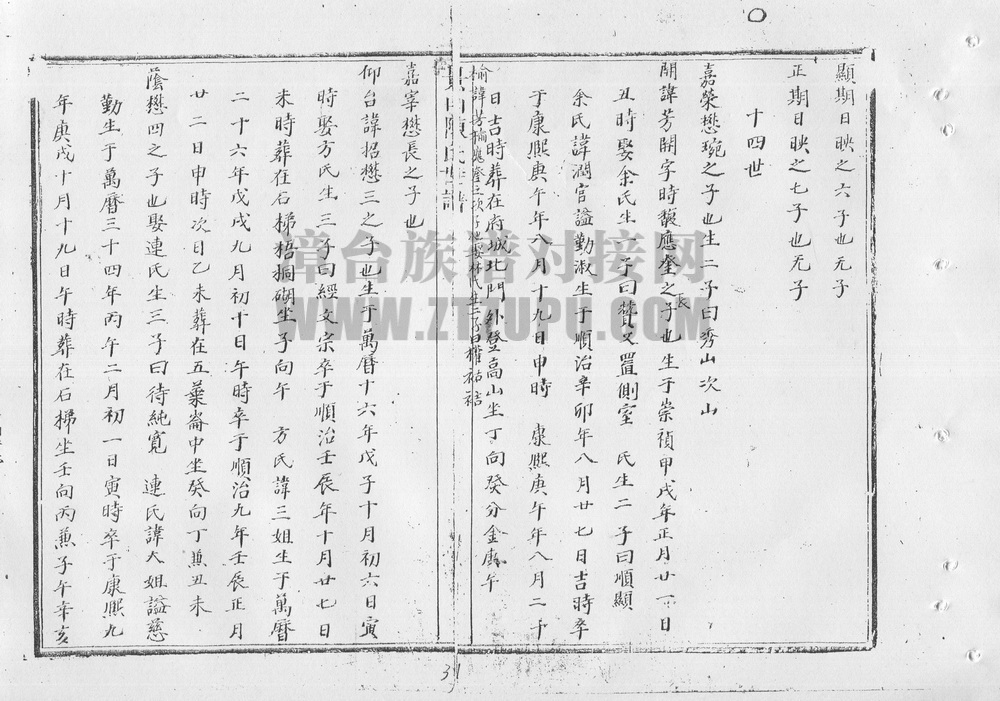 顯期日映之六子也无子
正期日映之七子也无子
十四世
嘉榮懋琬之子也生二子曰秀山次山
開諱芳開字時馥應奎之長子也生于崇禎甲戌年正月廿一日
丑時娶余氏生一子曰贊又置側室 氏生二子曰順顯
余氏諱潤官謚勤淑生于順治辛卯年八月廿七日吉時卒
于康熙庚午年八月十九日申時 康熙庚午年八月二十
日吉時葬在府城北門外登高山坐丁向癸分金庚午
榆諱芳榆 次子也娶林氏生二子曰權祜祮
嘉寧懋長之子也
仰台諱招懋三之子也生于萬曆十六年戊子十月初六日寅
時娶方氏生三子曰經文宗卒于順治壬辰年十月廿七日
未時葬在石梯梧桐硼坐子向午 方氏諱三姐生于萬曆
二十六年戊戌九月初十日午時卒于順治九年壬辰正月
廿二日申時次日乙未葬在五葉崙中坐癸向丁兼丑未
蔭懋四之子也娶連氏生三子曰待純寬 連氏諱大姐謚慈
勤生于萬曆三十四年丙午二月初一日寅時卒于康熙九
年庚戌十月十九日午時葬在石梯坐壬向丙兼子午辛亥
漳台族谱对接网
WWW.ZTZUPU.COM